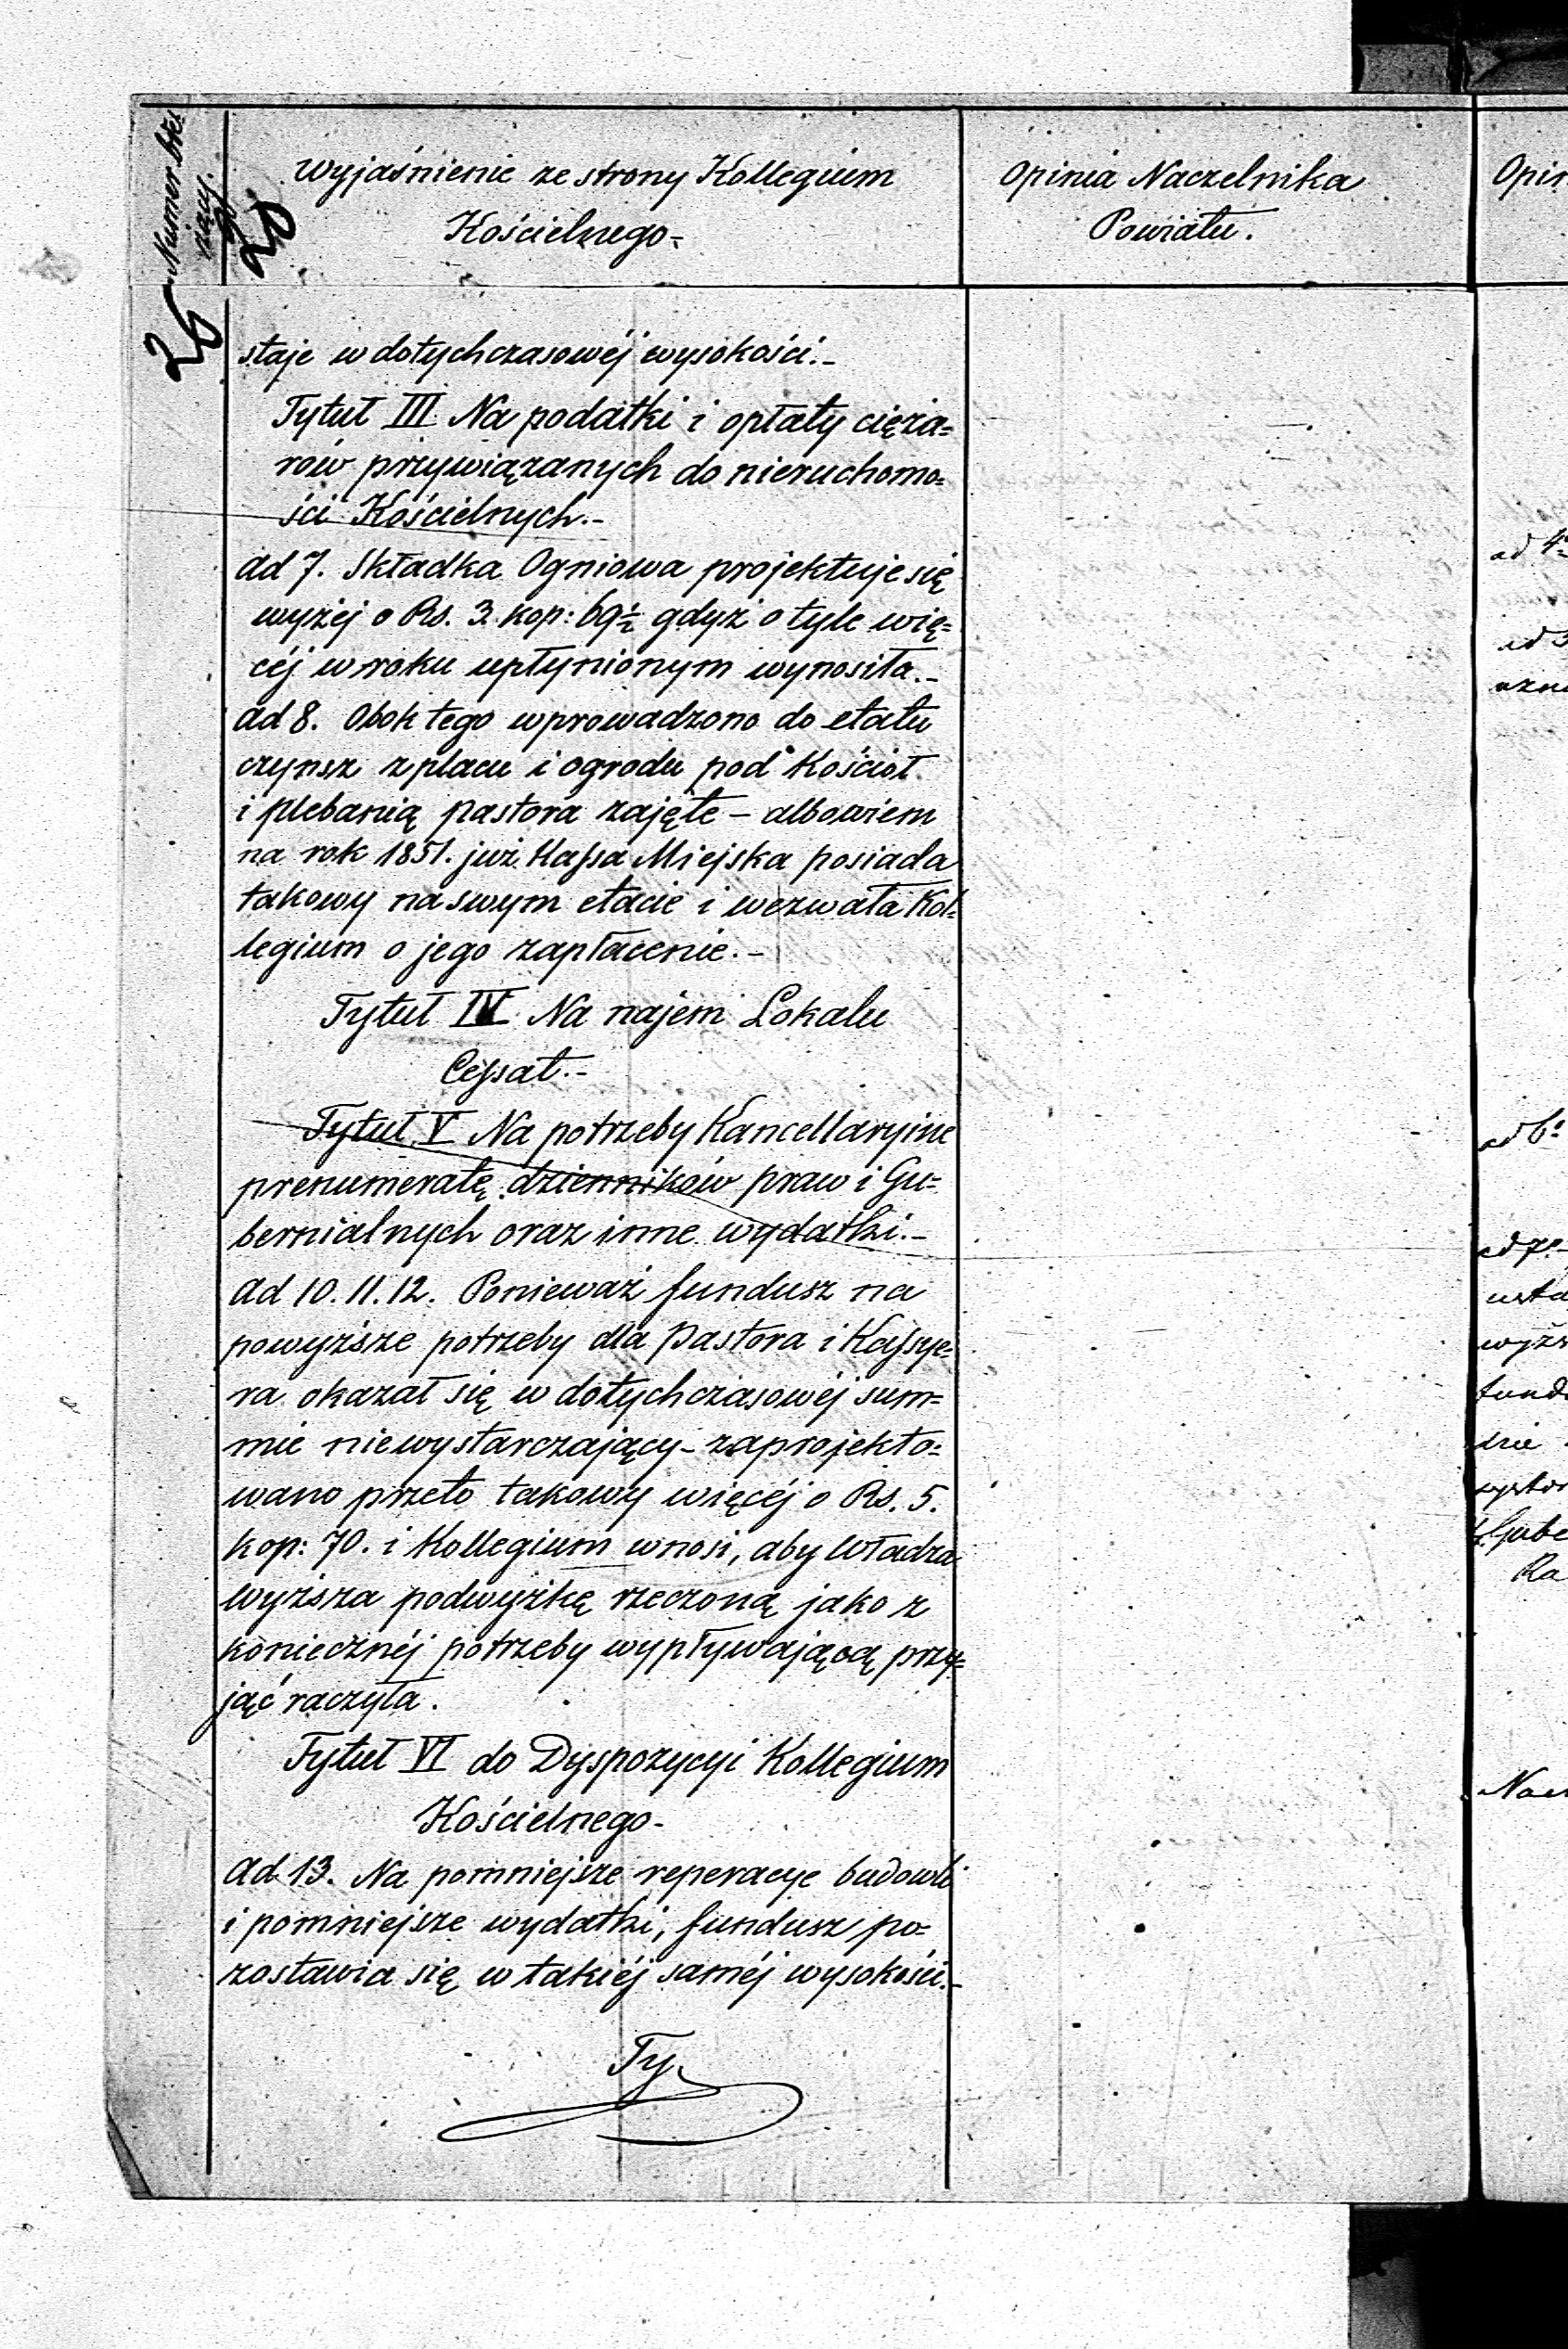 Numer bie
żący.
20
26
Wyjaśnienie ze strony Kollegium
Kościelnego-
Opinia Naczelnika
Powiatu.
Opin
staje w dotychczasowéj wysokości.-
Tytuł III Na podatki i opłaty cięża=
rów przywiązanych do nieruchomo=
ści Kościelnych.-
ad 7. Składka Ogniowa projektuje się
wyżej o Rs. 3. kop: 69½ gdyż o tyle wię=
céj w roku upłynionym wynosiła.-
ad 8. Obok tego wprowadzono do etatu
czynsz z placu i ogrodu pod Kościoł
i plebanią pastora zajęte - albowiem
na rok 1851. już Kassa Miejska posiada
takowy na swym etacie i wezwała Kol=
legium o jego zapłacenie.-
Tytuł IV Na najem Lokalu
Cessat.-
Tytuł V Na potrzeby Kancellaryine
prenumeratę dzienników praw i Gu=
bernialnych oraz inne wydatki.-
ad 10. 11. 12. Ponieważ fundusz na
powyższe potrzeby dla Pastora i Kassye=
ra okazał się w dotychczasowéj sum=
mie niewystarczający - zaprojekto=
wano przeto takowy więcéj o Rs. 5.
kop: 70. i Kollegium wnosi, aby Władza
wyższa podwyżkę rzeczoną jako z
koniecznéj potrzeby wypływającą przy=
jąć raczyła.
Tytuł VI do Dyspozycyi Kollegium
Kościelnego-
ad 13. Na pomniejsze reperacye budowli
i pomniejsze wydatki, fundusz po=
zostawia się w takiéj saméj wysokości.-
Ty